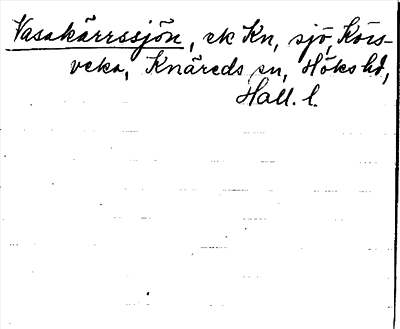 Vasakärrssjön, ek Kn, sjö, Körs-
veka, Knäreds sn, Höks hd,
Hall. l.